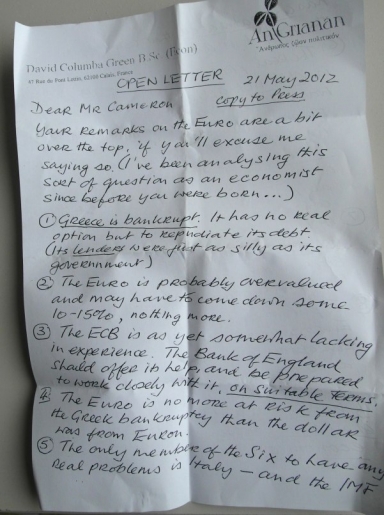 AnGrianan
David Columba Green B.Sc (Econ)
OPEN LETTER 21 May 2012
Dear Mr Cameron copy to Press
Your remarks on the Euro are a bit
over the top, if you'll excuse me
saying so. (I've been analysing this
sort of question as an economist
since before you were born...)
① Greece is bankrupt. It has no real
option but to repudiate its debt
(Its lenders were just as silly as its
government)
② The Euro is probably overvalued
and may have to come down some
10-15%, nothing more.
③ The ECB is as yet somewhat lacking
in experience. The Bank of England
should offer its help, and be prepared
to work closely with it, on suitable terms.
④ The Euro is no more at risk from
the Greek bankruptcy than the dollar
was from Enron.
⑤ The only member of the Six to have any
real problems is Italy — and the IMF